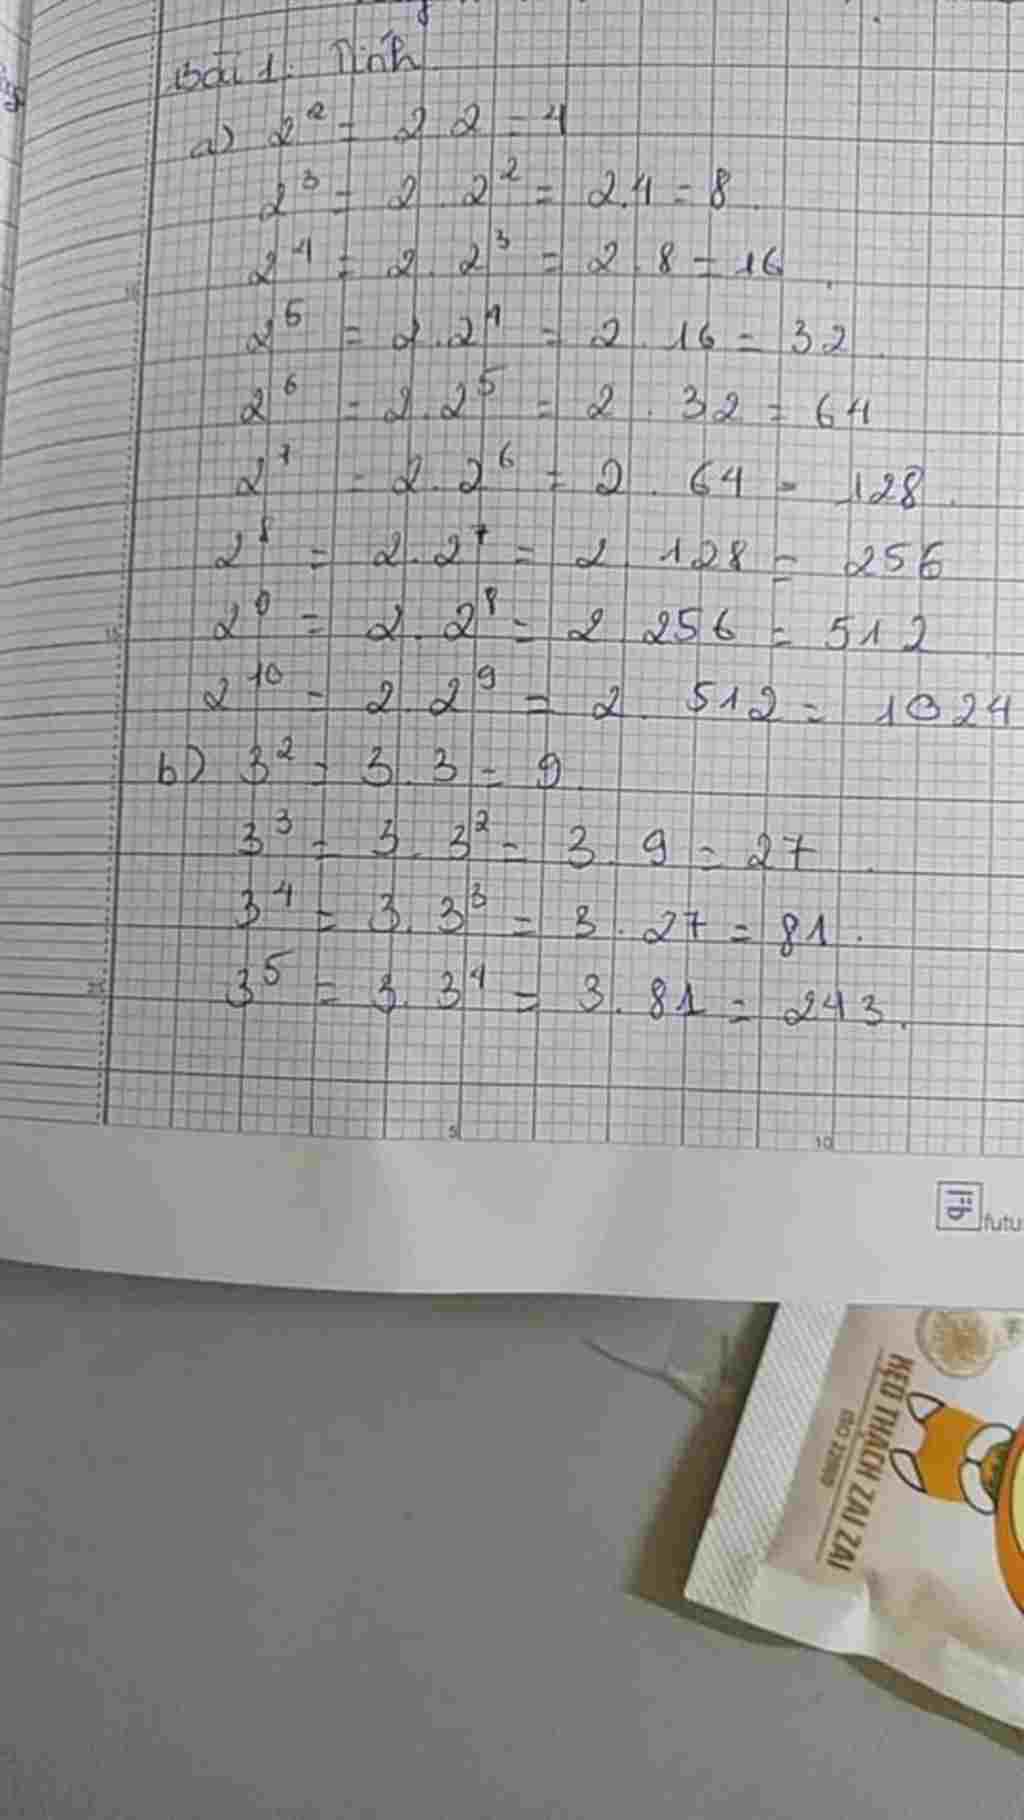 Bài 1. Tính
a) 2² = 2 2 = 4
2³ = 2 . 2² = 2.4 = 8.
2⁴ = 2. 2³ = 2 . 8 = 16.
2⁵ = 2.2⁴ = 2 . 16 = 32.
2⁶ = 2.2⁵ = 2 . 32 = 64
2⁷ = 2.2⁶ = 2 . 64 = 128.
2⁸ = 2.2⁷ = 2 128 = 256
2⁹ = 2.2⁸ = 2 256 = 512
2¹⁰ = 2.2⁹ = 2. 512 = 1024
b) 3² = 3.3 = 9.
3³ = 3. 3² = 3. 9 = 27.
3⁴ = 3. 3³ = 3. 27 = 81.
3⁵ = 3. 3⁴ = 3. 81 = 243.
5 10
futu
KẸO THẠCH ZAI ZAI
ISO 22000